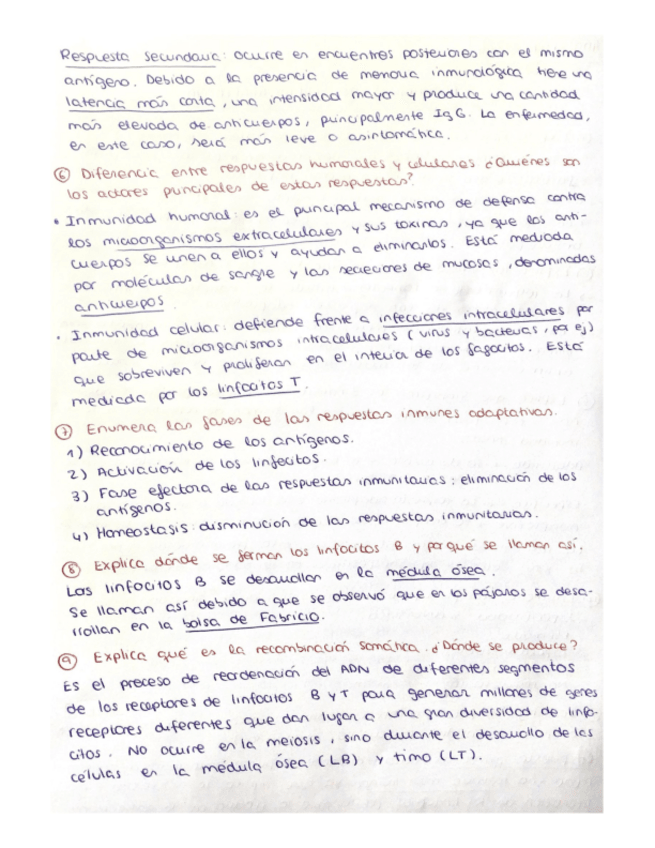 Respuesta secundaria: ocurre en encuentros posteriores con el mismo
antígeno. Debido a la presencia de memoria inmunológica tiene una
latencia más corta, una intensidad mayor y produce una cantidad
más elevada de anticuerpos, principalmente IgG. La enfermedad,
en este caso, será más leve o asintomática.
⑥ Diferencia entre respuestas humorales y celulares ¿Quiénes son
los actores principales de estas respuestas?
• Inmunidad humoral: es el principal mecanismo de defensa contra
los microorganismos extracelulares y sus toxinas, ya que los anti-
cuerpos se unen a ellos y ayudan a eliminarlos. Está mediada
por moléculas de sangre y las secreciones de mucosas, denominadas
anticuerpos.
• Inmunidad celular: defiende frente a infecciones intracelulares por
parte de microorganismos intracelulares (virus y bacterias, por ej)
que sobreviven y proliferan en el interior de los fagocitos. Está
mediada por los linfocitos T.
⑦ Enumera las fases de las respuestas inmunes adaptativas.
1) Reconocimiento de los antígenos.
2) Activación de los linfocitos.
3) Fase efectora de las respuestas inmunitarias: eliminación de los
antígenos.
4) Homeostasis: disminución de las respuestas inmunitarias.
⑧ Explica dónde se forman los linfocitos B y por qué se llaman así.
Los linfocitos B se desarrollan en la médula ósea.
Se llaman así debido a que se observó que en los pájaros se desa-
rrollan en la bolsa de Fabricio.
⑨ Explica qué es la recombinación somática. ¿Dónde se produce?
Es el proceso de reordenación del ADN de diferentes segmentos
de los receptores de linfocitos B y T para generar millones de genes
receptores diferentes que dan lugar a una gran diversidad de linfo-
citos. No ocurre en la meiosis, sino durante el desarrollo de las
células en la médula ósea (LB) y timo (LT).